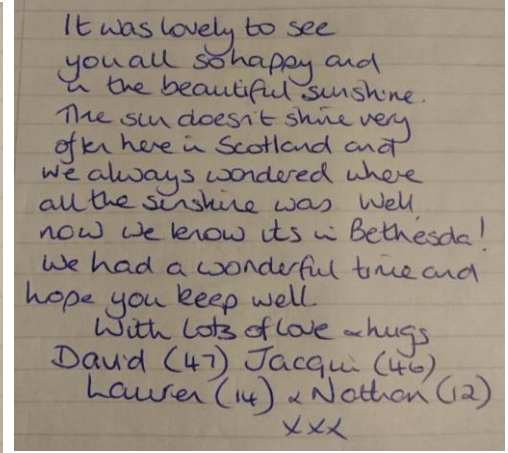 It was lovely to see
you all so happy and
in the beautiful sunshine.
The sun doesn't shine very
often here in Scotland and
we always wondered where
all the sunshine was. Well
now we know its in Bethesda!
We had a wonderful time and
hope you keep well.
With lots of love & hugs
David (47) Jacqui (46)
Lauren (14) & Nathan (12)
xxx